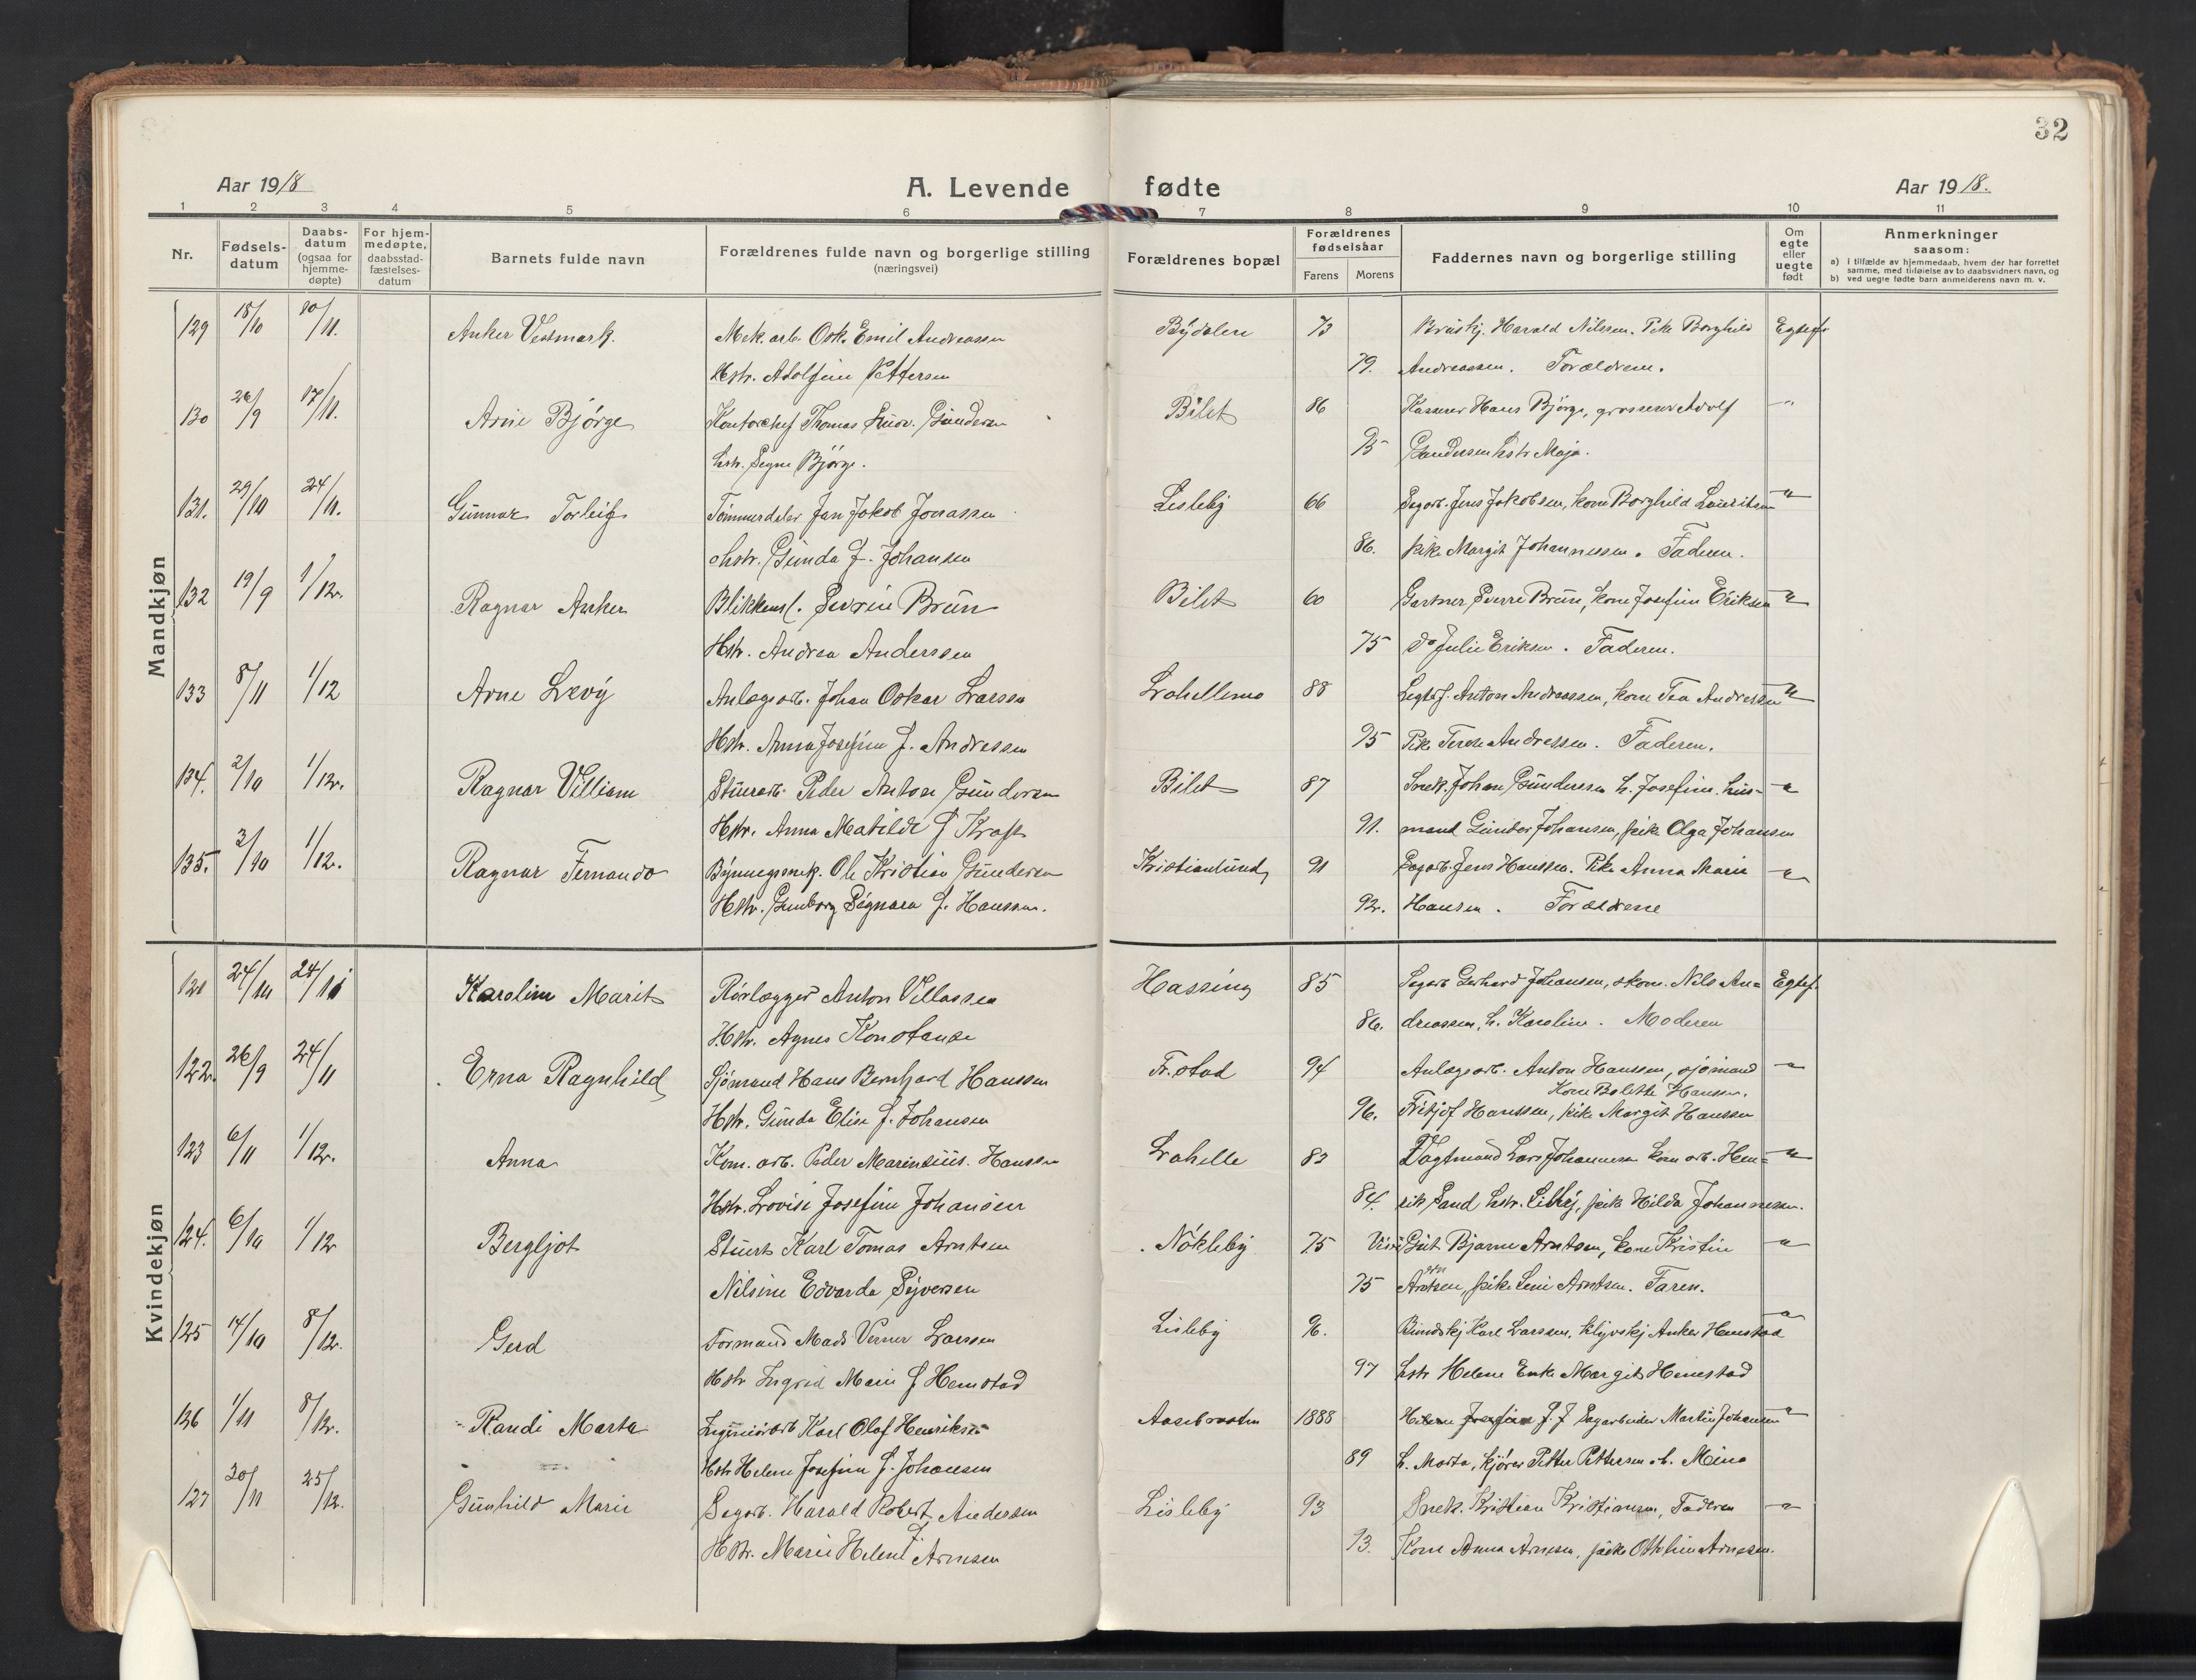 32
Aar 1918
A. Levende fødte
Aar 1918.
1 2 3 4 5 6 7 8 9 10 11
Nr.
Fødsels-
datum
Daabs-
datum
(ogsaa for
hjemme-
døpte)
For hjem-
medøpte,
daabsstad-
fæstelses-
datum
Barnets fulde navn
Forældrenes fulde navn og borgerlige stilling
(næringsvei)
Forældrenes bopæl
Forældrenes
fødselsaar
Farens Morens
Faddernes navn og borgerlige stilling
Om
egte
eller
uegte
født
Anmerkninger
saasom:
a) i tilfælde av hjemmedaab, hvem der har forrettet
samme, med tilføielse av to daabsvidners navn, og
b) ved uegte fødte barn anmelderens navn m. v.
Mandkjøn
129 18/10 10/11. Anker Vestmark. Mek. arb. Osk. Emil Andreassen Bydalen 73 Harald Nilssen. Pike Borghild Egtef.
Hstr. Adolfine Pettersen 79. Andreassen. Forældrene.
130 26/9 17/11. Arne Bjørge Kontorchef Thomas Gundersen Bilet 86 Kasserer Hans Bjørge, grosserer Adolf -"-
hstr. Signe Bjørge. 95 Gundersen hstr Maja.
131. 29/10 24/11. Gunnar Torleif Tømmerdeler Jan Jakob Jonassen Lisleby 66 Sagarb. Jens Jakobsen, kone Borghild Lauritsen -"-
hstr. Gunda f. Johansen 86. pike Margit Johannessen. Faderen.
132 19/9 1/12. Ragnar Anker Blikkensl. Severin Brun Bilet 60 Gartner Sverre Brun, kone Josefine Eriksen -"-
Hstr. Andrea Anderssen 75 do Julie Eriksen. Faderen.
133 8/11 1/12 Arne Levy Anlægsarb. Johan Oskar Larssen Lahellemo 88 Anton Andreassen, kone Tea Andressen -"-
Hstr. Anna Josefine f. Andressen 95 Pike Terese Andressen. Faderen.
134. 2/10 1/12. Ragnar Villiam Stuerarb. Peder Anton Gundersen Bilet 87 Snek. Johan Gunderssen h. Josefine. hus- -"-
Hstr. Anna Matilde f Kraft 91. mand Gunder Johansen, pike Olga Johansen
135. 3/10 1/12. Ragnar Fernando Bygningssnek. Ole Kristian Gundersen Kristianlund 91 Sagarb. Jens Hanssen. Pike Anna Marie -"-
Hstr. Gunborg Signora f. Hanssen. 92. Hansen. Forældrene
Kvindekjøn
121 24/10 24/11 Karoline Marit Rørlægger Anton Villassen Hassing 85 Sagarb Gerhard Johansen, skom. Nils An= Egtef.
Hstr. Agnes Konstanse 86. dreassen, h. Karoline. Moderen
122. 26/9 24/11 Erna Ragnhild Sjømand Hans Bernhard Hanssen Fr.stad 94 Anlægsarb. Anton Hanssen, sjømand -"-
Kone Bolette Hanssen.
Hstr. Gunda Elise f. Johansen 96. Fritjof Hanssen, pike Margit Hanssen
123 6/11 1/12. Anna Kom. arb. Peder Marensius. Hanssen Lahelle 83 Vagtmand Lars Johannesen kom arb. Hen= -"-
Hstr. Lovise Josefine Johansen 84. rik Sand hstr. Lilly, pike Hilda Johannessen.
124. 6/10 1/12 Bergljot Stuert Karl Tomas Arntsen Nøkleby 75 Visergut Bjarne Arntsen, kone Kristin -"-
Nilsine Edvarda Syversen 75 Arntsen, pike Leni Arntsen. Faren.
125 14/10 8/12. Gerd Formand Mads Verner Larssen Lisleby 96. Karl Larssen, Anker Hemstad -"-
Hstr Ingrid Marie f Hemstad 97 hstr Helene Enke Margit Hemestad
126 1/11 8/12. Randi Marta Karl Olaf Henriksen 1888 Sagarbeider Martin Johansen -"-
Hstr Helene Josefine f. Johansen 89 h. Marta, kjører Petter Pettersen h. Mina
127 30/11 25/12. Gunhild Marie Sagarb. Harald Robert Andersen Lisleby 93 Snek. Kristian Kristiansen, Faderen -"-
Hstr. Marie Helene f. Arnesen 93. Kone Anna Arnesen, pike Otthine Arnesen.